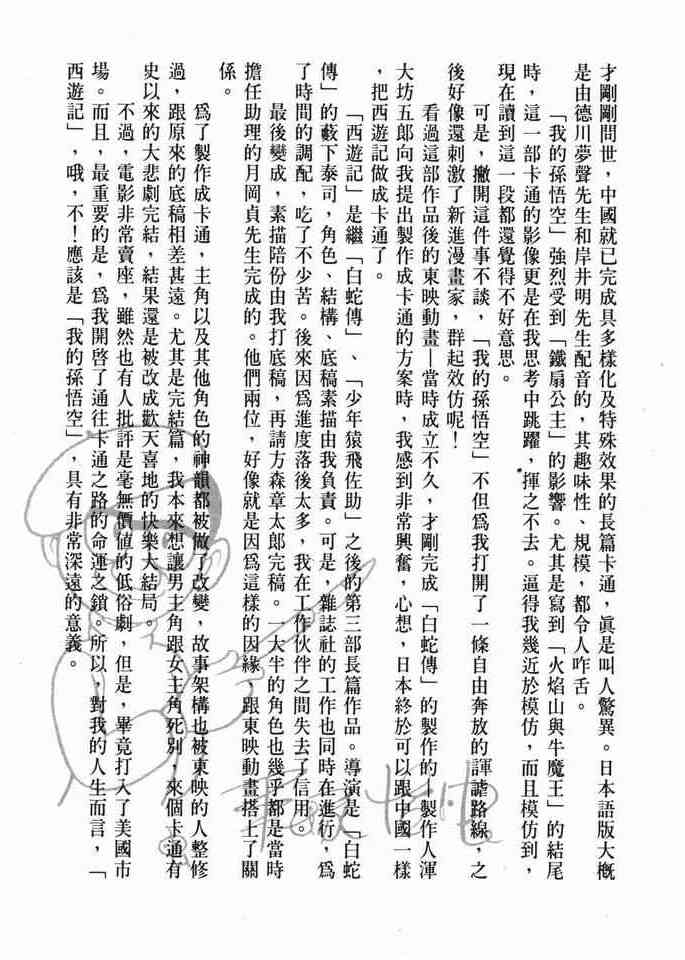 才剛剛問世，中國就已完成具多樣化及特殊效果的長篇卡通，眞是叫人驚異。日本語版大槪
是由德川夢聲先生和岸井明先生配音的，其趣味性、規模，都令人咋舌。
「我的孫悟空」強烈受到「鐵扇公主」的影響。尤其是寫到「火焰山與牛魔王」的結尾
時，這一部卡通的影像更是在我思考中跳躍，揮之不去。逼得我幾近於模仿，而且模仿到，
現在讀到這一段都還覺得不好意思。
可是，撇開這件事不談，「我的孫悟空」不但爲我打開了一條自由奔放的諢謔路線，之
後好像還刺激了新進漫畫家，群起效仿呢！
看過這部作品後的東映動畫—當時成立不久，才剛完成「白蛇傳」的製作的，製作人渾
大坊五郎向我提出製作成卡通的方案時，我感到非常興奮，心想，日本終於可以跟中國一樣
，把西遊記做成卡通了。
「西遊記」是繼「白蛇傳」、「少年猿飛佐助」之後的第三部長篇作品。導演是「白蛇
傳」的藪下泰司，角色、結構、底稿素描由我負責。可是，雜誌社的工作也同時在進行，爲
了時間的調配，吃了不少苦。後來因爲進度落後太多，我在工作伙伴之間失去了信用。
最後變成，素描陪份由我打底稿，再請方森章太郎完稿。一大半的角色也幾乎都是當時
擔任助理的月岡貞先生完成的。他們兩位，好像就是因爲這樣的因緣，跟東映動畫搭上了關
係。
爲了製作成卡通，主角以及其他角色的神韻都被做了改變，故事架構也被東映的人整修
過，跟原來的底稿相差甚遠。尤其是完結篇，我本來想讓男主角跟女主角死別，來個卡通有
史以來的大悲劇完結，結果還是被改成歡天喜地的快樂大結局。
不過，電影非常賣座，雖然也有人批評是毫無價値的低俗劇，但是，畢竟打入了美國市
場。而且，最重要的是，爲我開啓了通往卡通之路的命運之鎖。所以，對我的人生而言，「
西遊記」，哦，不！應該是「我的孫悟空」，具有非常深遠的意義。